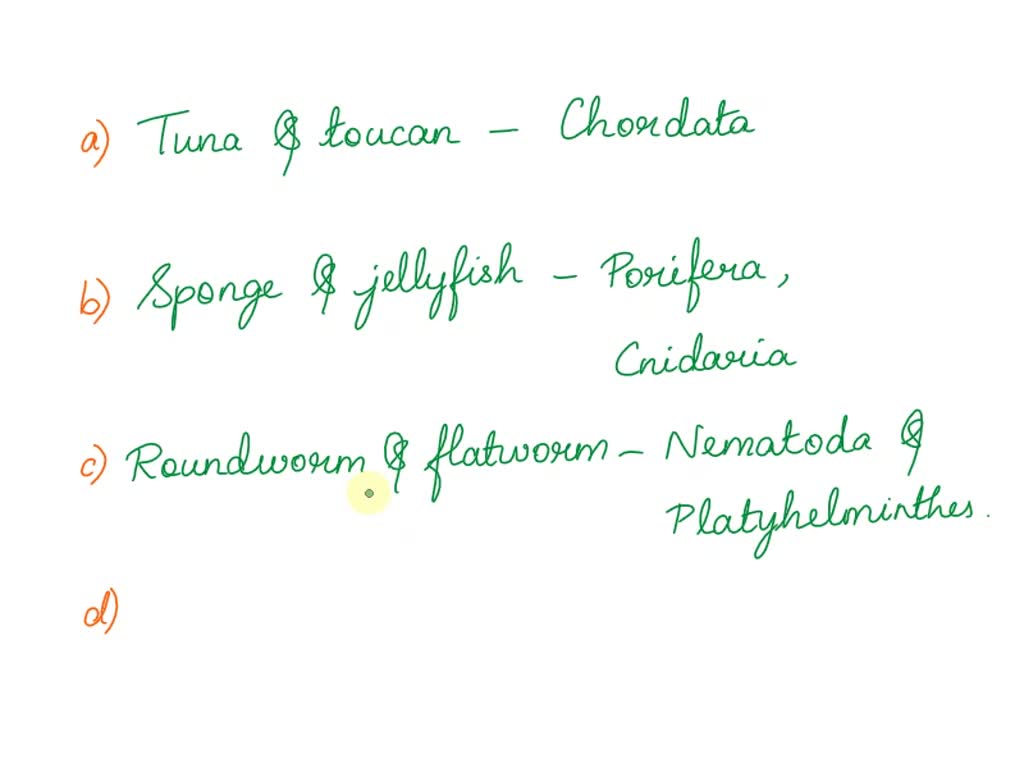 a) Tuna & toucan - Chordata
b) Sponge & jellyfish - Porifera,
Cnidaria
c) Roundworm & flatworm - Nematoda &
Platyhelminthes.
d)